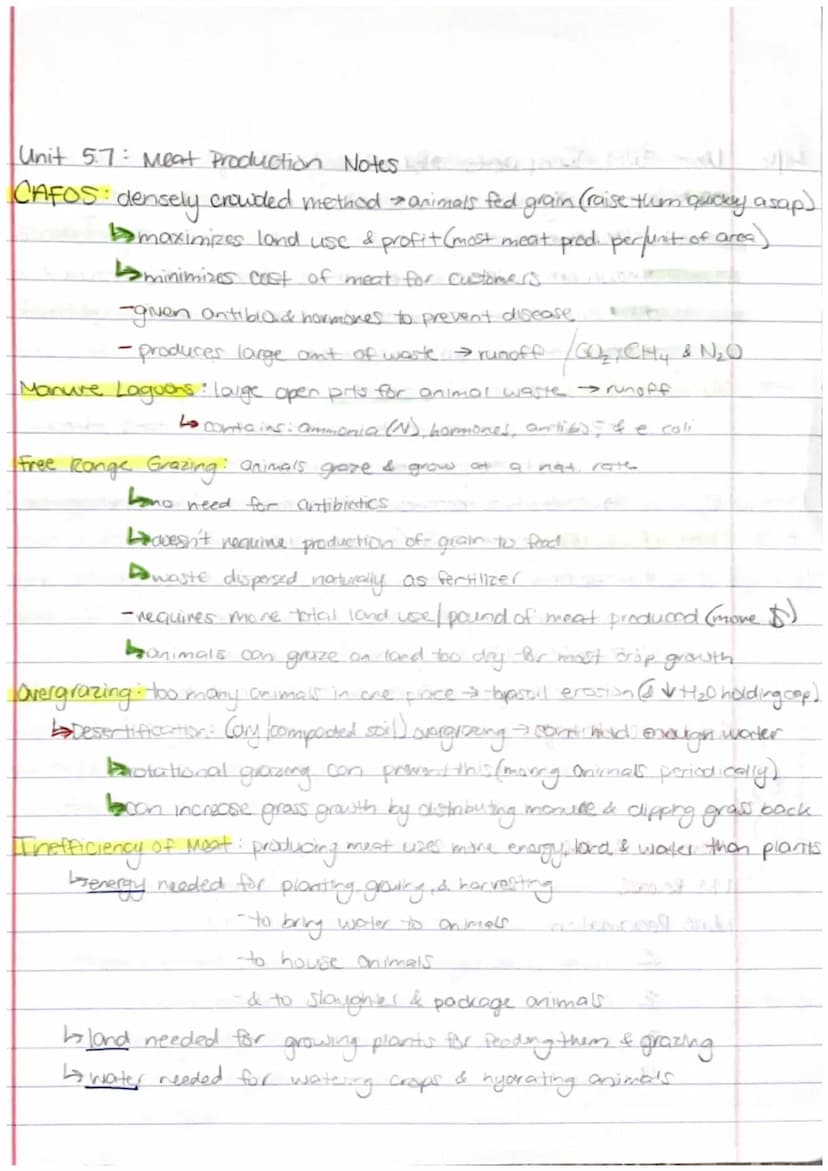 Unit 5.7: Meat Production Notes
CAFOS: densely crowded method → animals fed grain (raise them quickly asap)
↳ maximizes land use & profit (most meat prod. per/unit of area)
↳ minimizes cost of meat for customers
- given antibio. & hormones to prevent disease
- produces large amt of waste → runoff / CO₂, CH₄ & N₂O
Manure Lagoons: large open pits for animal waste → runoff
↳ contains: ammonia (N), hormones, antibio, & e coli
Free Range Grazing: animals graze & grow at a nat. rate
↳ no need for antibiotics
↳ doesn't require production of grain to feed
↳ waste dispersed naturally as fertilizer
- requires more total land use / pound of meat produced (more $)
↳ animals can graze on land too dry for most crop growth
Overgrazing: too many animals in one place → topsoil erosion (& ↓ H₂O holding cap)
↳ Desertification: (dry/compacted soil) overgrazing → cant hold enough water
↳ rotational grazing can prevent this (moving animals periodically)
↳ can increase grass growth by distributing manure & clipping grass back
Inefficiency of Meat: producing meat uses more energy, land & water than plants
↳ energy needed for planting, growing, & harvesting
- to bring water to animals
- to house animals
- & to slaughter & package animals
↳ land needed for growing plants for feeding them & grazing
↳ water needed for watering crops & hydrating animals